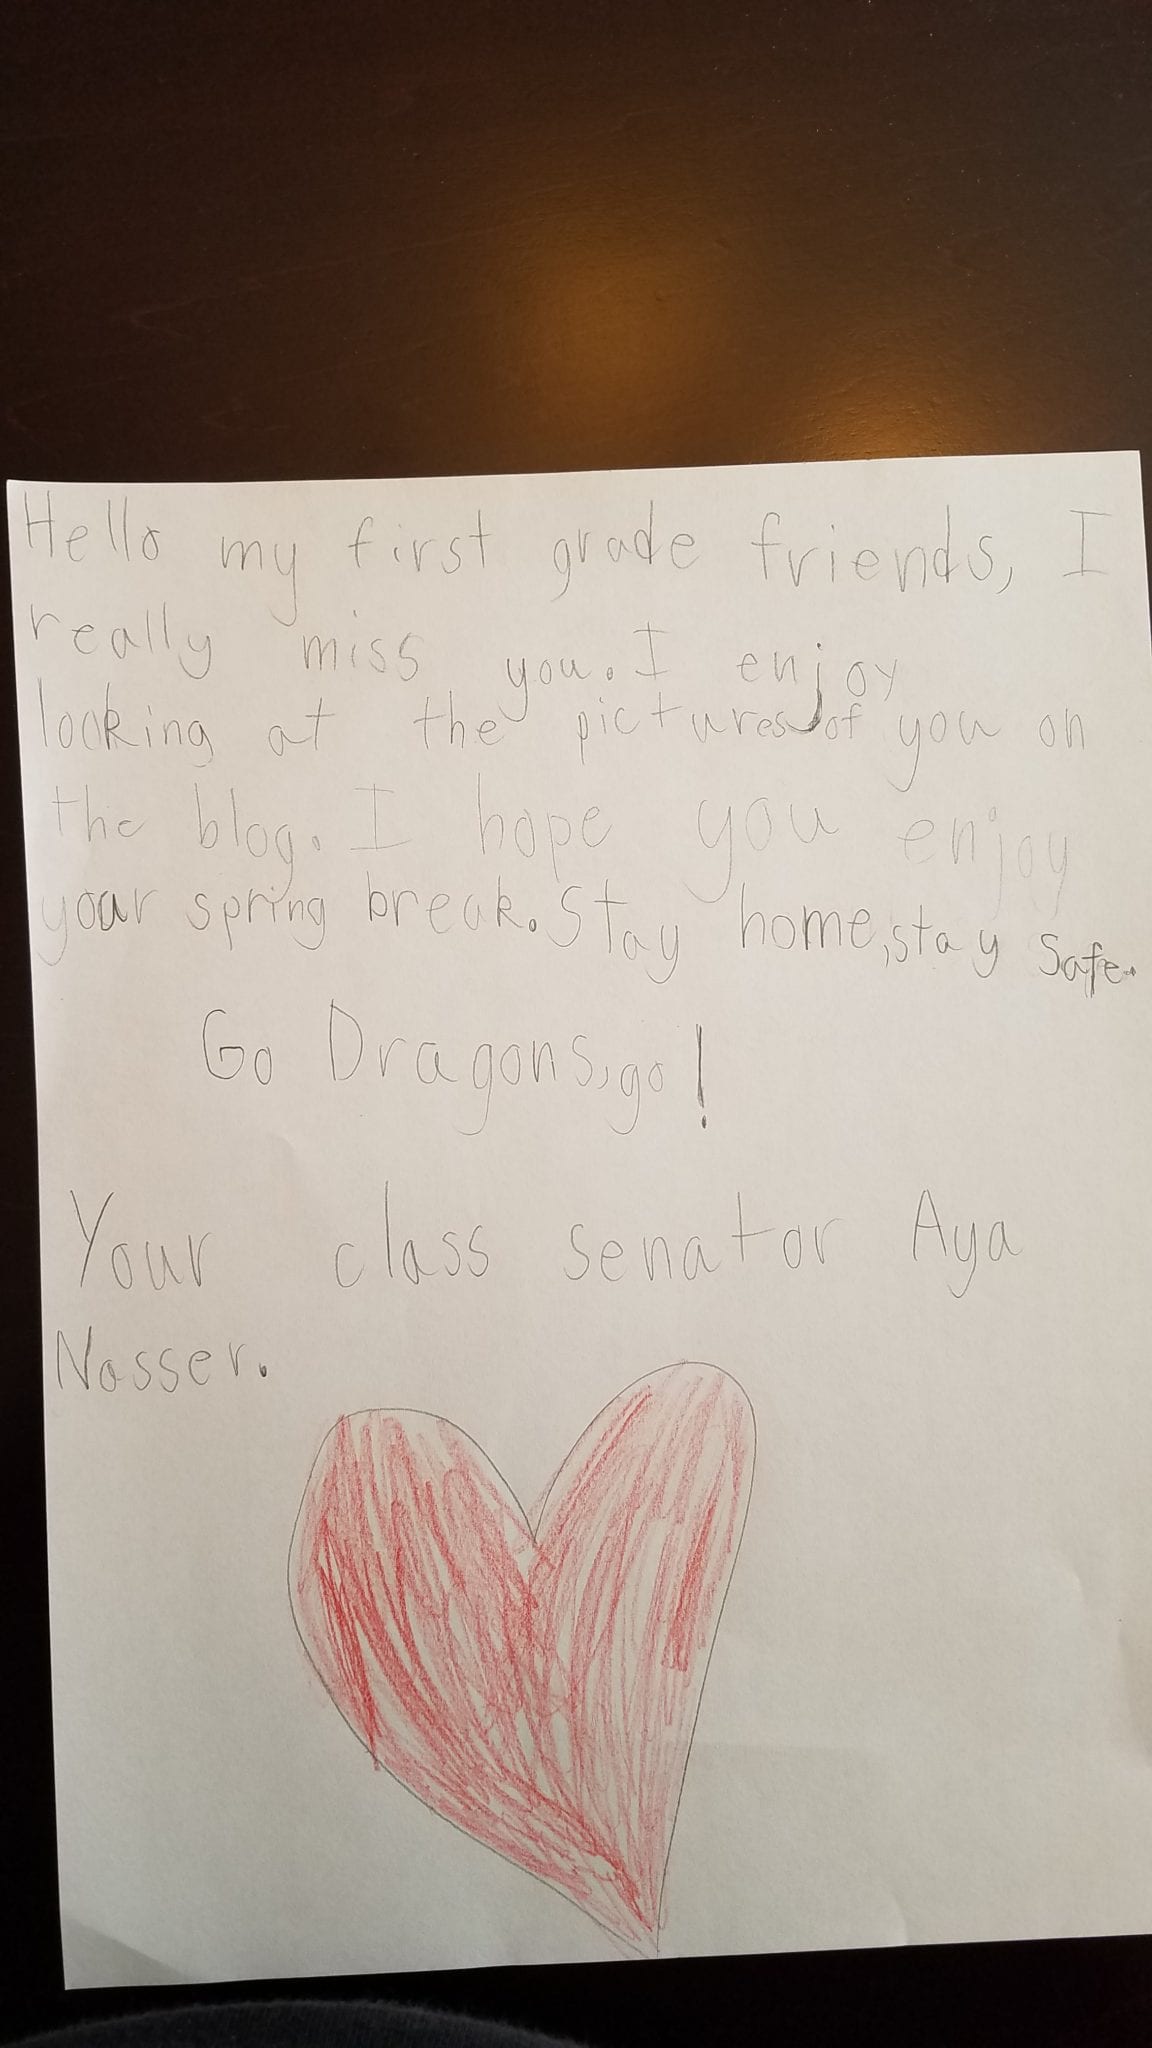 Hello my first grade friends, I
really miss you. I enjoy
looking at the pictures of you on
the blog. I hope you enjoy
your spring break. Stay home, stay safe.
Go Dragons, go!
Your class senator Aya
Nosser.